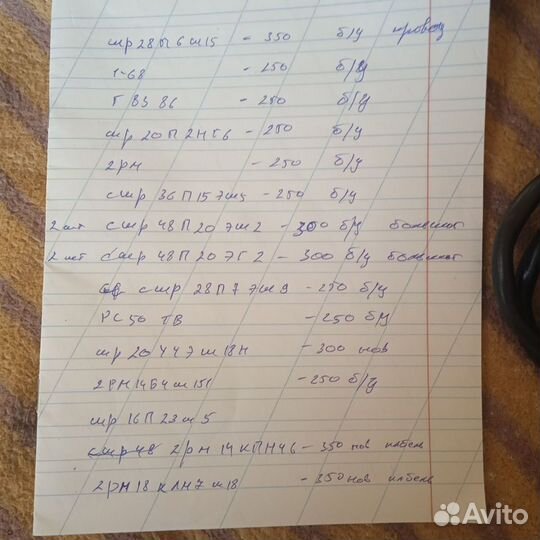 шр 28 П 6 ш 15 - 350 б/у провод
1-68 - 250 б/у
Г 83 86 - 250 б/у
шр 20 П 2 НГ 6 - 250 б/у
2рм - 250 б/у
сшр 36 П 15 Эш 5 - 250 б/у
2 шт сшр 48 П 20 Эш 2 - 300 б/у большой
2 шт сшр 48 П 20 ЭГ 2 - 300 б/у большой
сшр 28 П 7 Эш 9 - 250 б/у
РС 50 ТВ - 250 б/у
шр 20 4 4 Э ш 18 Н - 300 нов
2РМ 14 Б 4 ш 1 - 250 б/у
шр 16 П 2 Э ш 5
2рм 14 КПН 4 - 350 нов кабель
2рм 18 7 ш 18 - 350 нов кабель
Avito